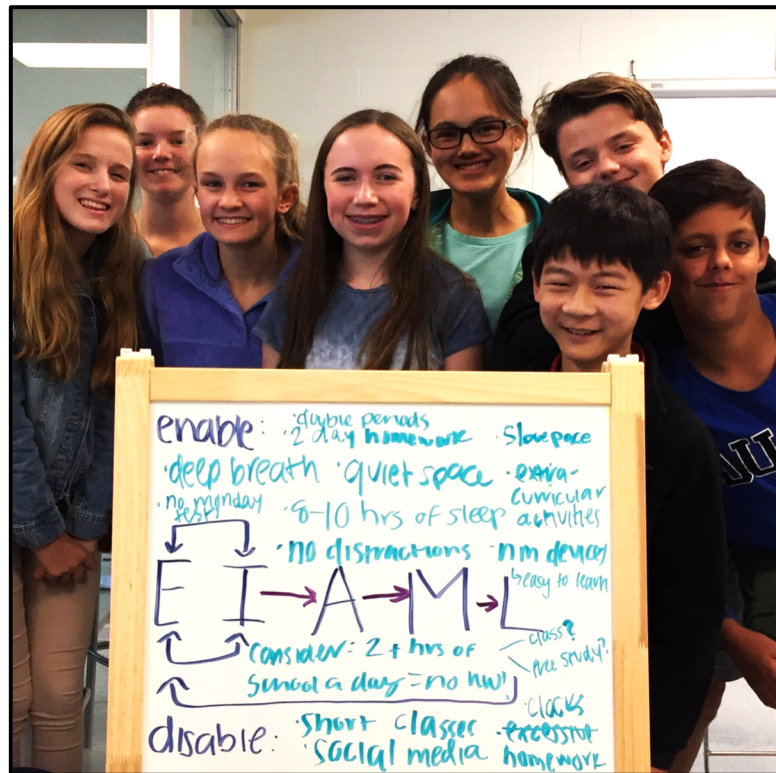 enable:
·double periods
·2 day homework
·slow pace
·deep breath
·quiet space
·extra-
curricular
activities
·no monday
tests
·8-10 hrs of sleep
·no distractions
·nm devices
↳easy to learn
E I → A → M → L
consider: 2+ hrs of
school a day = no hw!
class?
free study?
disable:
·short classes
·social media
·clocks
·excessive
homework